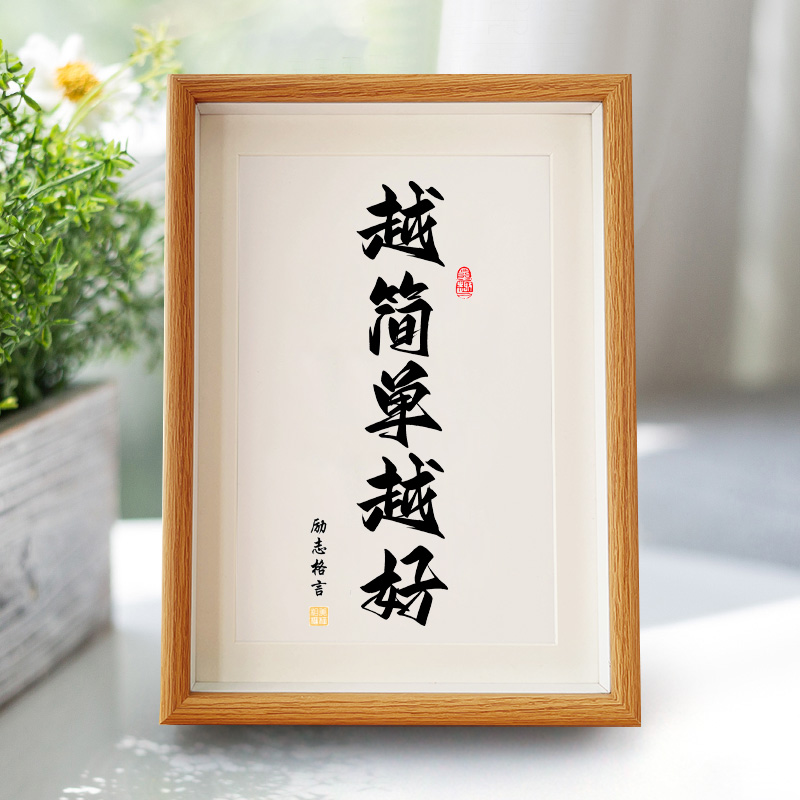 越简单越好
励志格言